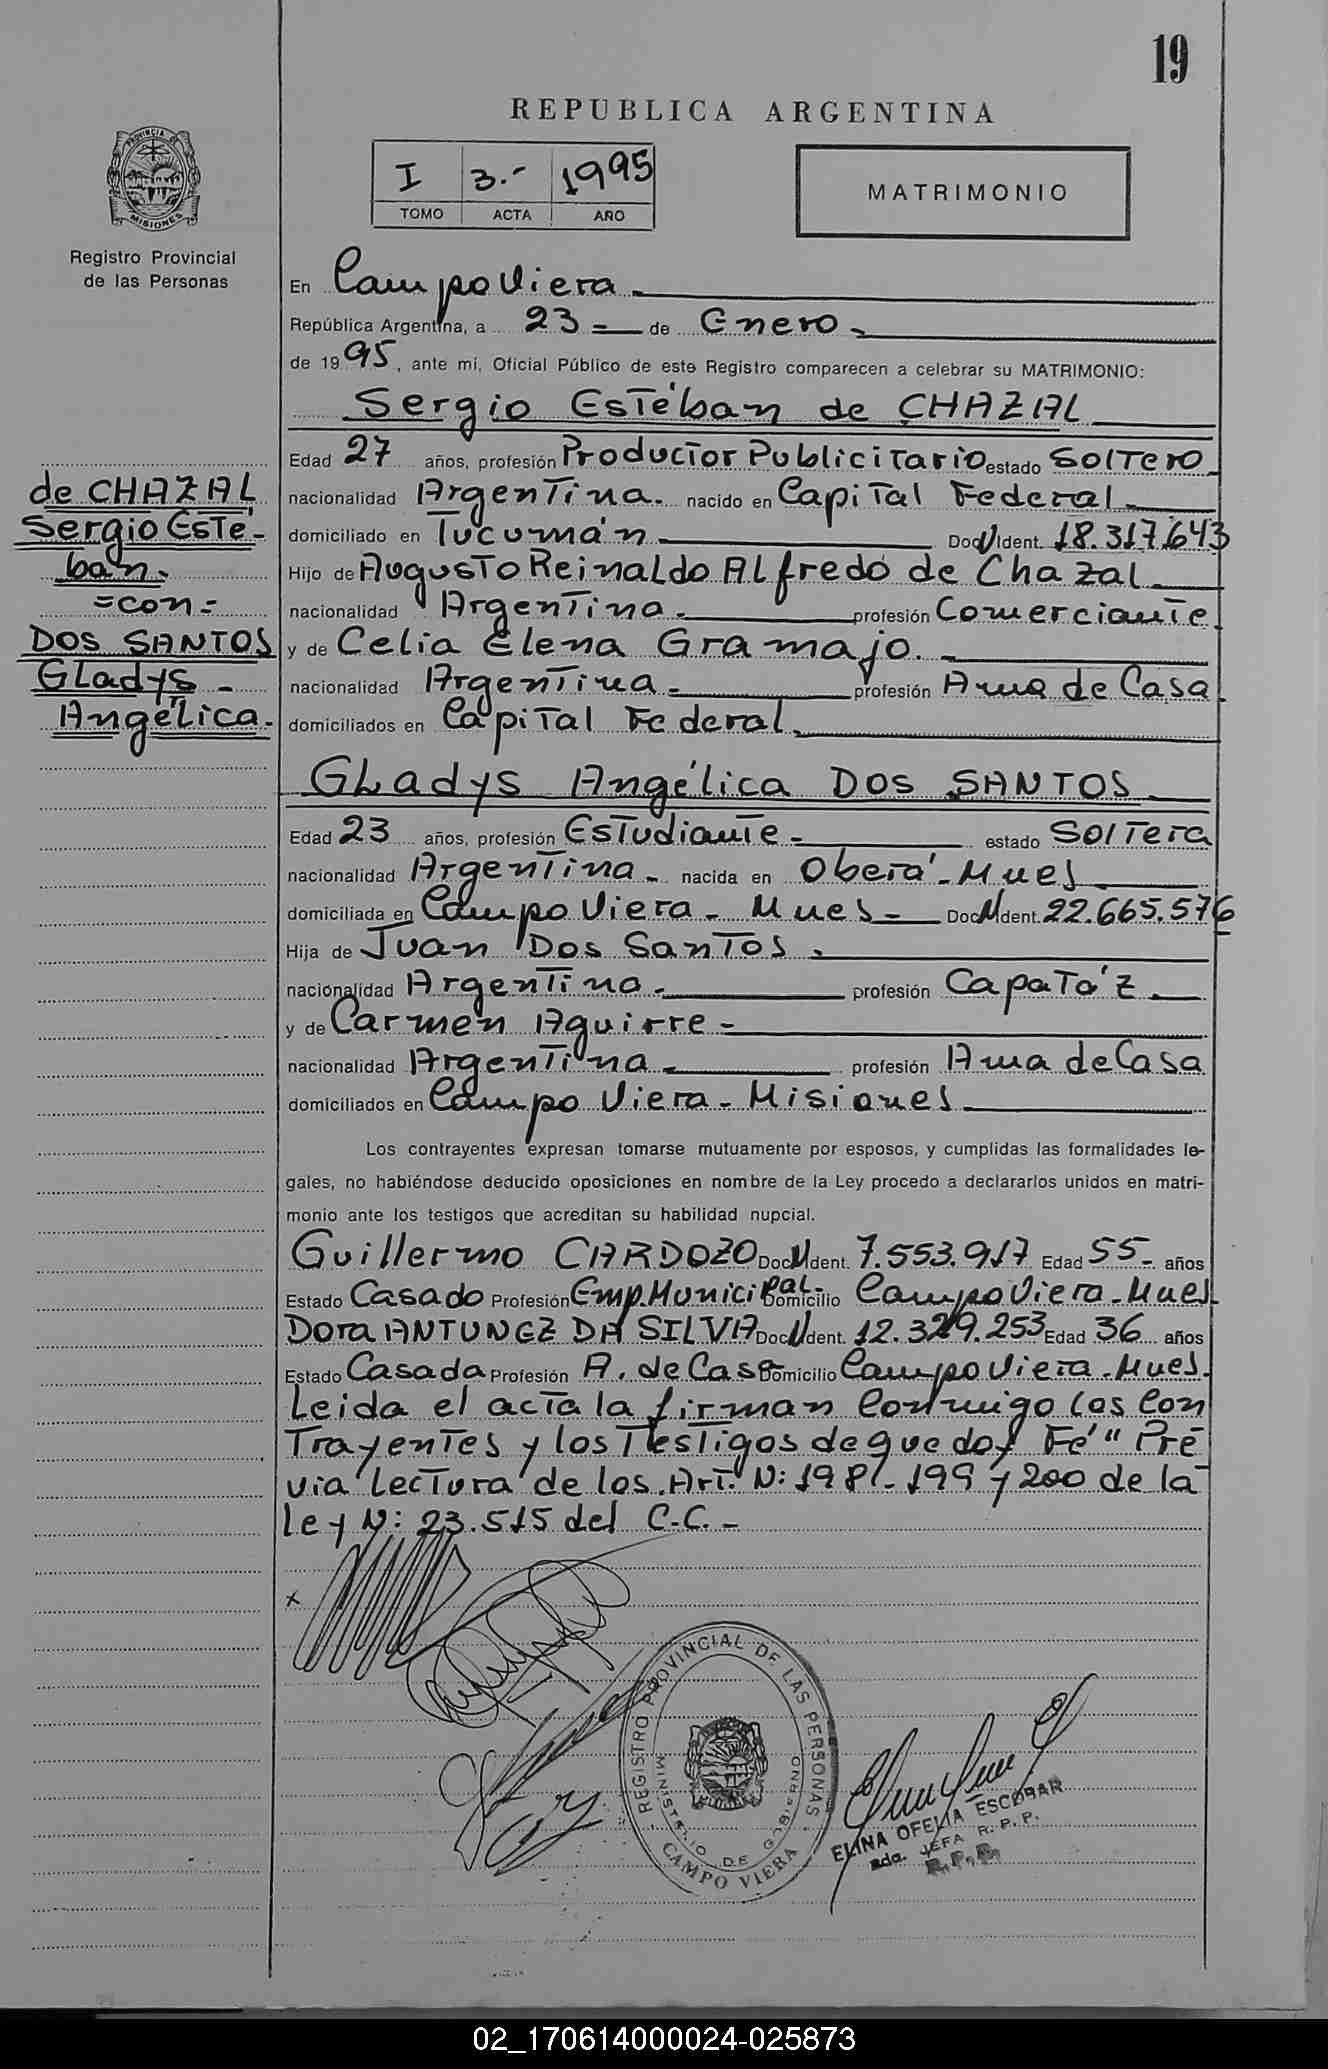 19
REPUBLICA ARGENTINA
I 3.- 1995
TOMO ACTA AÑO
MATRIMONIO
PROVINCIA DE MISIONES
Registro Provincial
de las Personas
de CHAZAL
Sergio Esté-
ban.
=con=
DOS SANTOS
Gladys -
Angélica.
En Campo Viera
República Argentina, a 23 = de Enero
de 1995, ante mí, Oficial Público de este Registro comparecen a celebrar su MATRIMONIO:
Sergio Estéban de CHAZAL
Edad 27 años, profesión Productor Publicitario estado Soltero
nacionalidad Argentina. nacido en Capital Federal
domiciliado en Tucumán Doc. Ident. 18.317.643
Hijo de Augusto Reinaldo Alfredo de Chazal
nacionalidad Argentina profesión Comerciante
y de Celia Elena Gramajo.
nacionalidad Argentina profesión Ama de Casa
domiciliados en Capital Federal
Gladys Angélica DOS SANTOS
Edad 23 años, profesión Estudiante estado Soltera
nacionalidad Argentina nacida en Oberá-Mnes
domiciliada en Campo Viera - Mnes Doc. Ident. 22.665.576
Hija de Juan Dos Santos
nacionalidad Argentina profesión Capatáz
y de Carmen Aguirre
nacionalidad Argentina profesión Ama de Casa
domiciliados en Campo Viera - Misiones
Los contrayentes expresan tomarse mutuamente por esposos, y cumplidas las formalidades le-
gales, no habiéndose deducido oposiciones en nombre de la Ley procedo a declararlos unidos en matri-
monio ante los testigos que acreditan su habilidad nupcial.
Guillermo CARDOZO Doc. Ident. 7.553.917 Edad 55 años
Estado Casado Profesión Emp. Municipal Domicilio Campo Viera - Mnes
Dora ANTUNEZ DA SILVA Doc. Ident. 12.329.253 Edad 36 años
Estado Casada Profesión A. de Casa Domicilio Campo Viera - Mnes.
Leida el acta la firman Conmigo los Con
Trayentes y los Testigos de que doy Fé" Pre
via lectura de los Art. N: 198 - 199 y 200 de la
ley N: 23.515 del C.C. -
x
REGISTRO PROVINCIAL DE LAS PERSONAS
MINISTERIO DE GOBIERNO
CAMPO VIERA
ELINA OFELIA ESCOBAR
2da. JEFA R. P. P.
R. P. P.
02_170614000024-025873